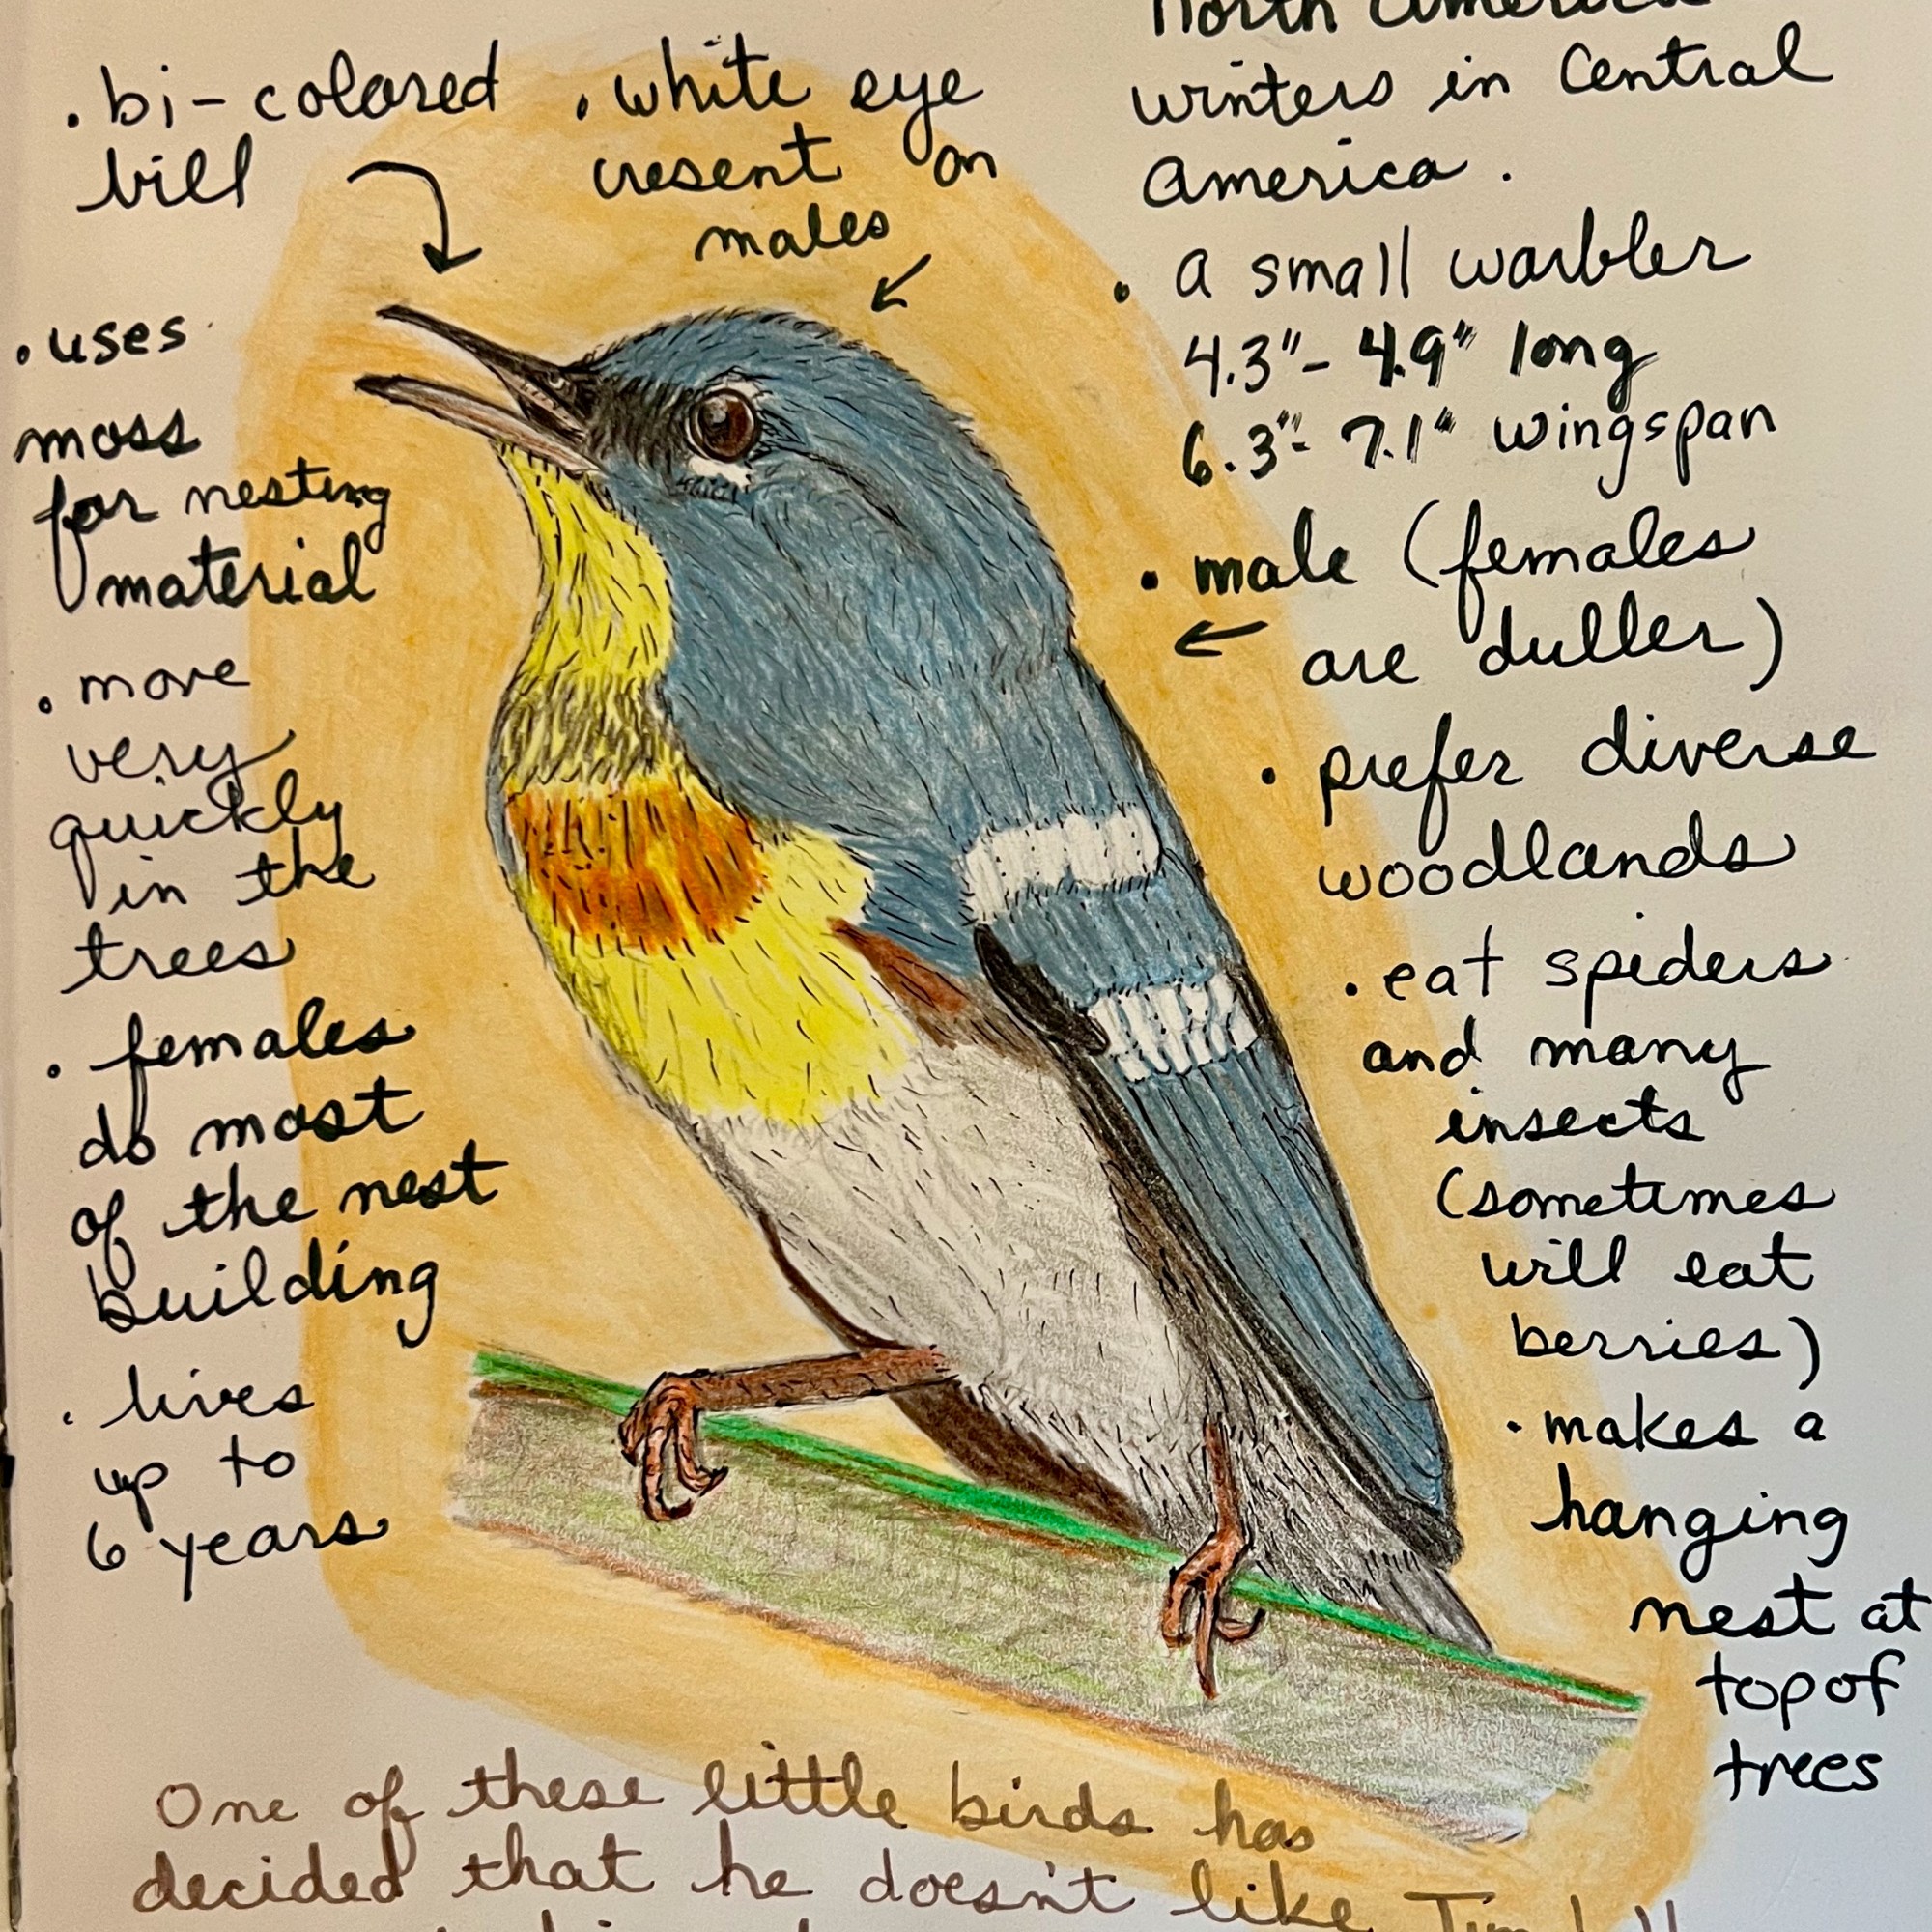 · bi-colored
bill
· white eye
cresent on
males
North America
winters in Central
America.
· a small warbler
4.3"- 4.9" long
6.3"- 7.1" wingspan
· male (females
are duller)
· prefer diverse
woodlands
· eat spiders
and many
insects
(sometimes
will eat
berries)
· makes a
hanging
nest at
top of
trees
· uses
moss
for nesting
material
· move
very
quickly
in the
trees
· females
do most
of the nest
building
· lives
up to
6 years
One of these little birds has
decided that he doesn't like